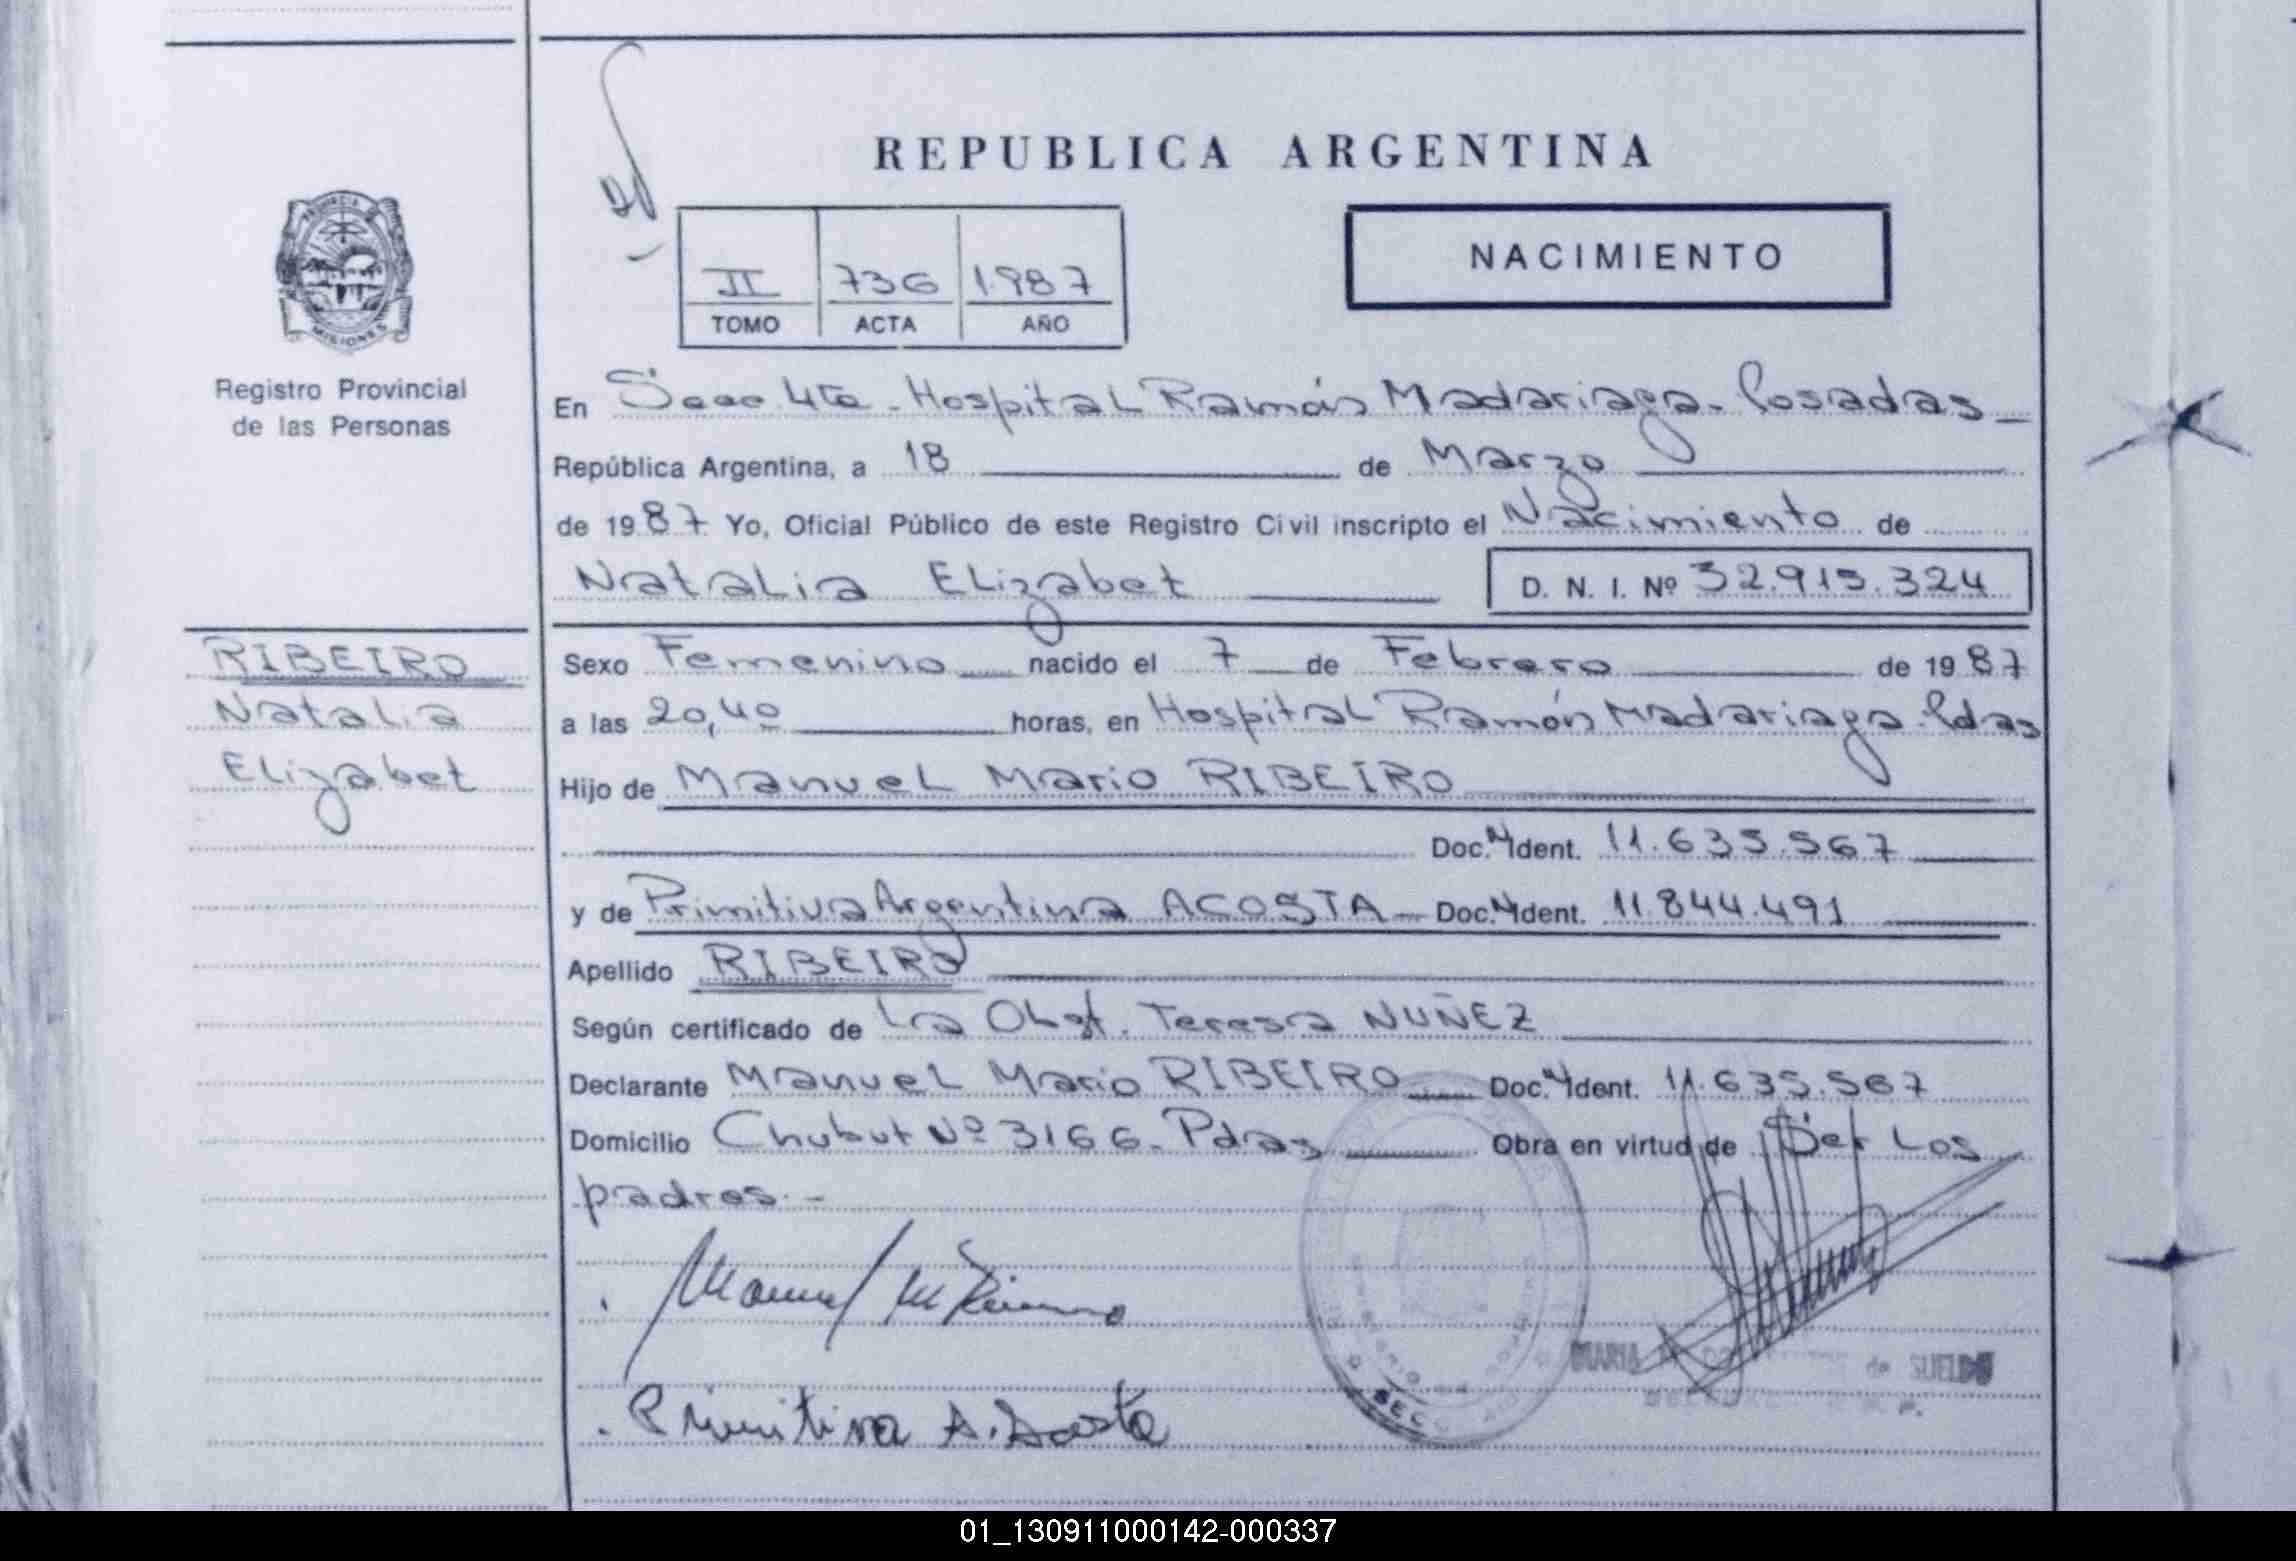 REPUBLICA ARGENTINA
NACIMIENTO
II 736 1.987
TOMO ACTA AÑO
PROVINCIA DE
MISIONES
Registro Provincial
de las Personas
En Secc 4ta - Hospital Ramón Madariaga - Posadas
República Argentina, a 18 de Marzo
de 1987 Yo, Oficial Público de este Registro Civil inscripto el Nacimiento de
Natalia Elizabet D. N. I. Nº 32.915.324
RIBEIRO
Natalia
Elizabet
Sexo Femenino nacido el 7 de Febrero de 1987
a las 20,40 horas, en Hospital Ramón Madariaga - Pdas
Hijo de Manuel Mario RIBEIRO
Doc. N Ident. 11.635.567
y de Primitiva Argentina ACOSTA Doc. N Ident. 11.844.491
Apellido RIBEIRO
Según certificado de La Obst. Teresa NUÑEZ
Declarante Manuel Mario RIBEIRO Doc. N Ident. 11.635.567
Domicilio Chubut Nº 3166 - Pdas Obra en virtud de Ser Los
padres. -
Manuel M
MARIA de SUELDO
Primitiva A. Acosta
SECC
01_130911000142-000337